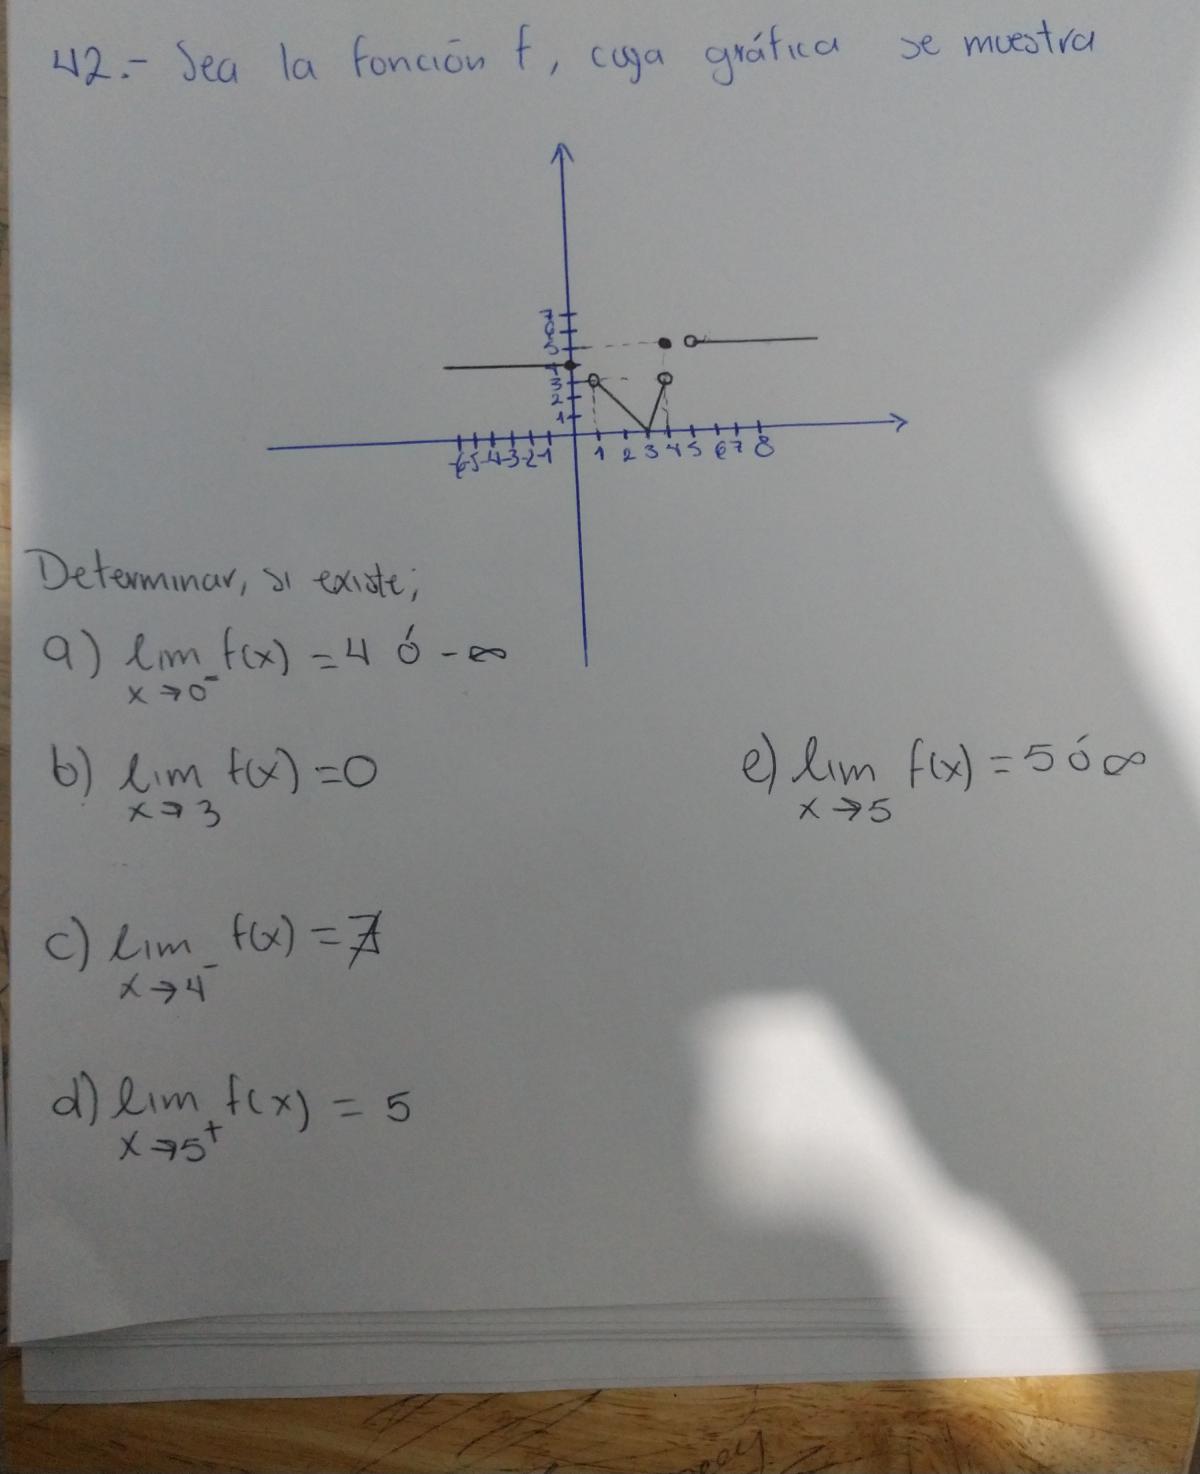 42.- Sea la función f, cuya gráfica se muestra
7
6
5
4
3
2
1
-6 -5 -4 -3 -2 -1 1 2 3 4 5 6 7 8
Determinar, si existe;
a) lim x→0⁻ f(x) = 4 ó -∞
b) lim x→3 f(x) = 0
e) lim x→5 f(x) = 5 ó ∞
c) lim x→4⁻ f(x) = ∄
d) lim x→5⁺ f(x) = 5